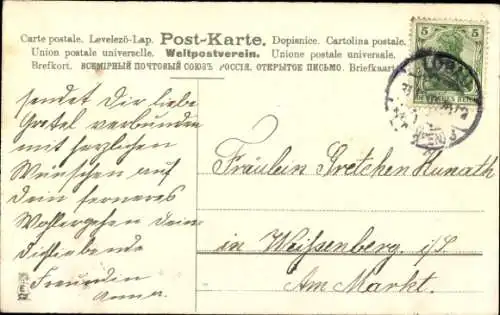 Carte postale. Levelező-Lap. Post-Karte. Dopisnice. Cartolina postale.
Union postale universelle. Weltpostverein. Unione postale universale.
Brefkort. ВСЕМІРНЫЙ ПОЧТОВЫЙ СОЮЗЪ РОССІЯ. ОТКРЫТОЕ ПИСЬМО. Briefkaart
5 5
DEUTSCHES REICH
LÖBAU
sendet Dir liebe
Gretel verbunden
mit herzlichen
Wünschen auf
Dein ferneres
Wohlergehen Deine
Dichliebende
Freundin
Anna.
Fräulein Gretchen Kunath
in Weissenberg. i/S.
Am Markt.